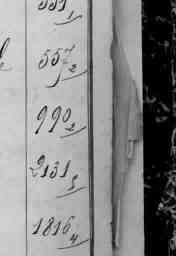 557 2
990 2
2131 3
1816 4